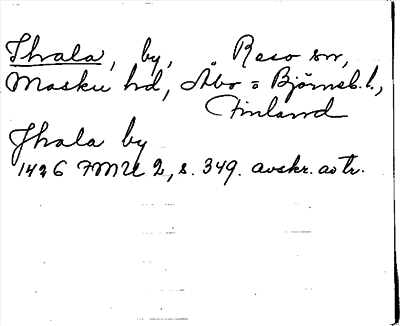 Ihala, by, Reso sn,
Masku hd, Åbo o Björneb. l.,
Finland
Jhala by
1426 FMU 2, s. 349. avskr. av tr.